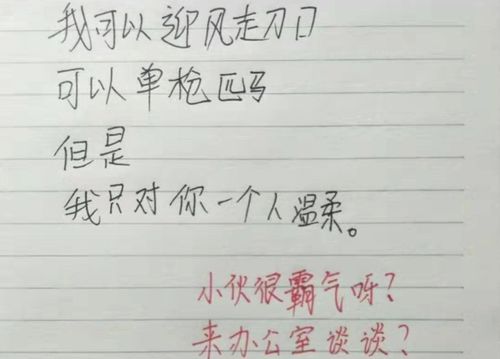 我可以迎风走刀口
可以单枪匹马
但是
我只对你一个人温柔。
小伙很霸气呀?
来办公室谈谈?